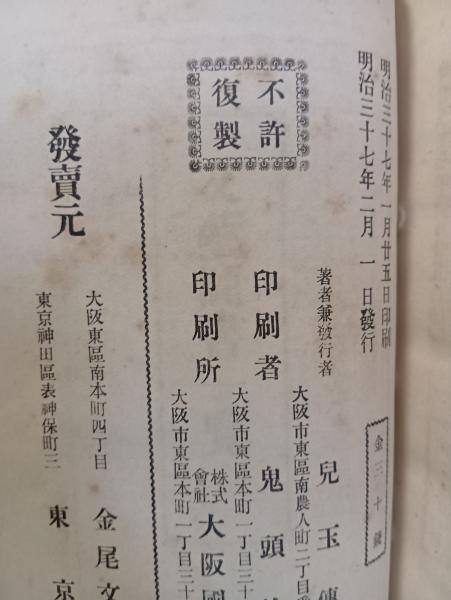 明治三十七年一月廿五日印刷
明治三十七年二月一日發行
金三十錢
不許
復製
著者兼發行者
大阪市東區南農人町二丁目
兒玉
印刷者
大阪市東區本町一丁目三十
鬼頭
印刷所
大阪市東區本町一丁目三十
株式
會社
大阪國
發賣元
大阪東區南本町四丁目
金尾文
東京神田區表神保町三
東京